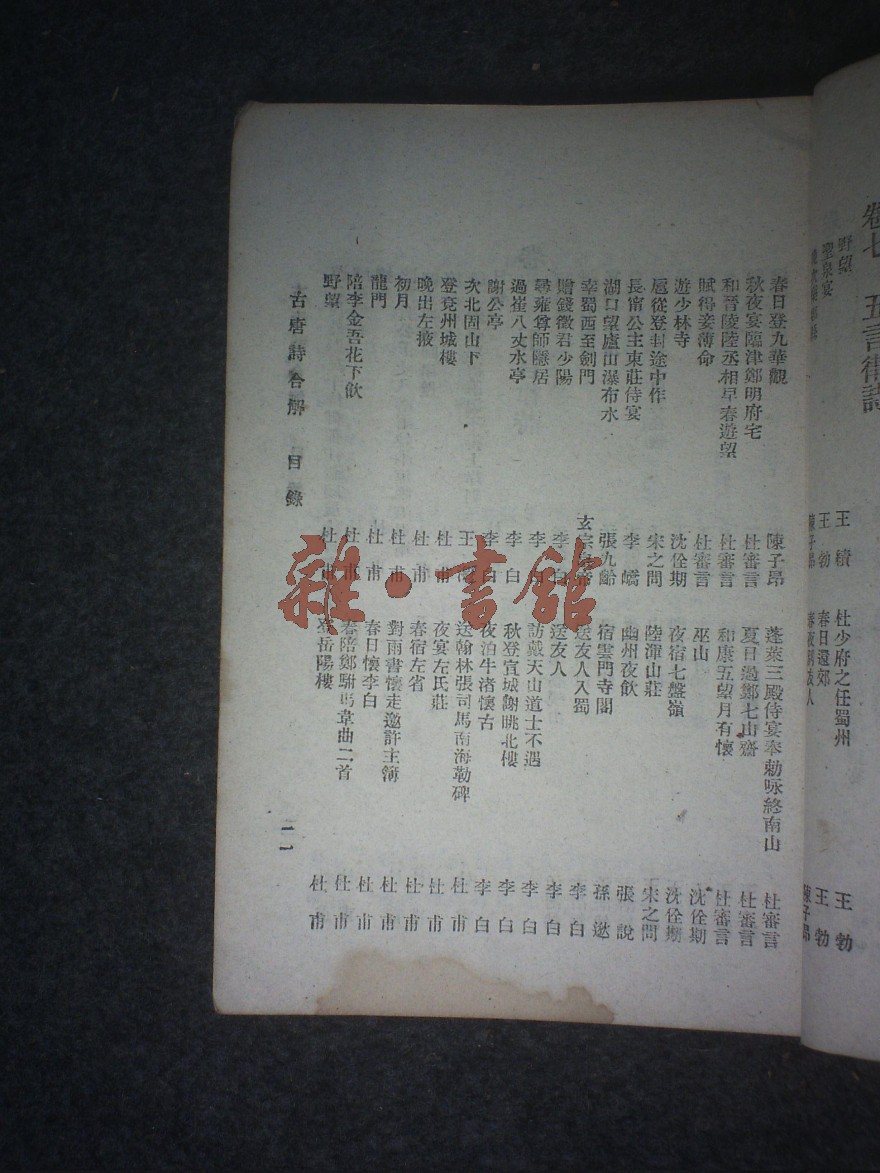 卷七 五言律詩
野望 王績 杜少府之任蜀州 王勃
聖泉宴 王勃 春日還郊 王勃
陳子昂 春夜別友人 陳子昂
春日登九華觀 陳子昂 蓬萊三殿侍宴奉勅咏終南山 杜審言
秋夜宴臨津鄭明府宅 杜審言 夏日過鄭七山齋 杜審言
和晉陵陸丞相早春遊望 杜審言 和康五望月有懷 杜審言
賦得妾薄命 杜審言 巫山 沈佺期
遊少林寺 沈佺期 夜宿七盤嶺 沈佺期
扈從登封途中作 宋之問 陸渾山莊 宋之問
長甯公主東莊侍宴 李嶠 幽州夜飲 張說
湖口望廬山瀑布水 張九齡 宿雲門寺閣 孫逖
幸蜀西至劍門 玄宗皇帝 送友人入蜀 李白
贈錢徵君少陽 李白 送友人 李白
尋雍尊師隱居 李白 訪戴天山道士不遇 李白
過崔八丈水亭 李白 秋登宣城謝眺北樓 李白
謝公亭 李白 夜泊牛渚懷古 李白
次北固山下 王灣 送翰林張司馬南海勒碑 杜甫
登兗州城樓 杜甫 夜宴左氏莊 杜甫
晚出左掖 杜甫 春宿左省 杜甫
初月 杜甫 對雨書懷走邀許主簿 杜甫
龍門 杜甫 春日懷李白 杜甫
陪李金吾花下飲 杜甫 春陪鄭駙馬韋曲二首 杜甫
野望 杜甫 登岳陽樓 杜甫
古唐詩合解 目錄 一一
雜·書館